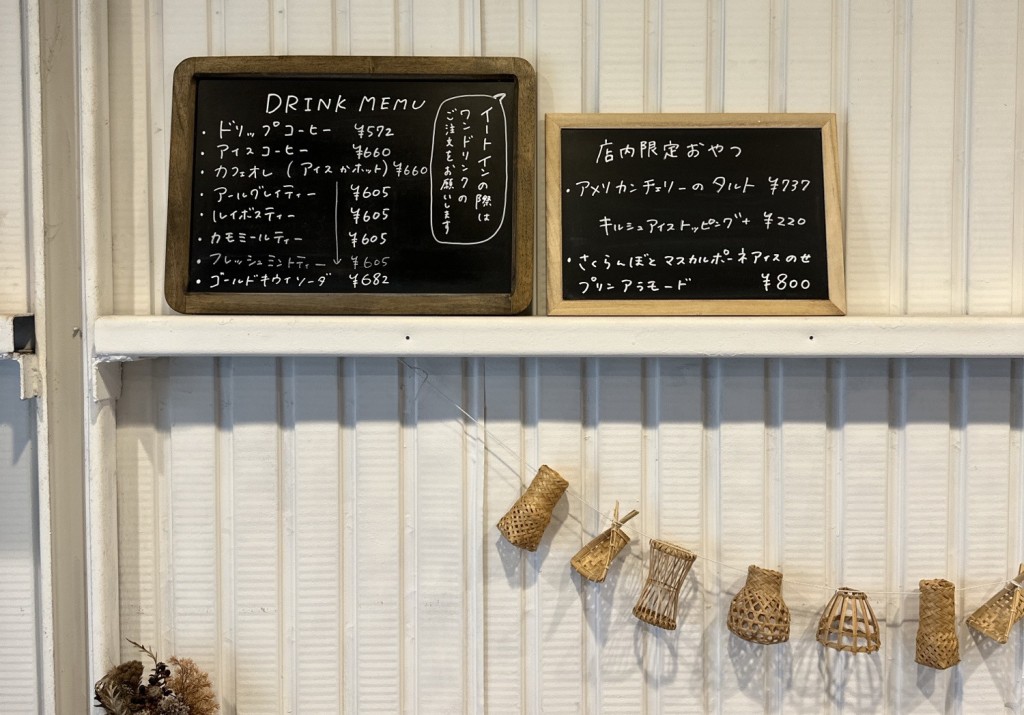 DRINK MEMU
・ドリップコーヒー ¥572
・アイスコーヒー ¥660
・カフェオレ (アイスかホット) ¥660
・アールグレイティー ¥605
・ルイボスティー ¥605
・カモミールティー ¥605
・フレッシュミントティー ¥605
・ゴールドキウイソーダ ¥682
イートインの際は
ワンドリンクの
ご注文をお願いします
店内限定おやつ
・アメリカンチェリーのタルト ¥737
キルシュアイストッピング+ ¥220
・さくらんぼとマスカルポーネアイスのせ
プリンアラモード ¥800